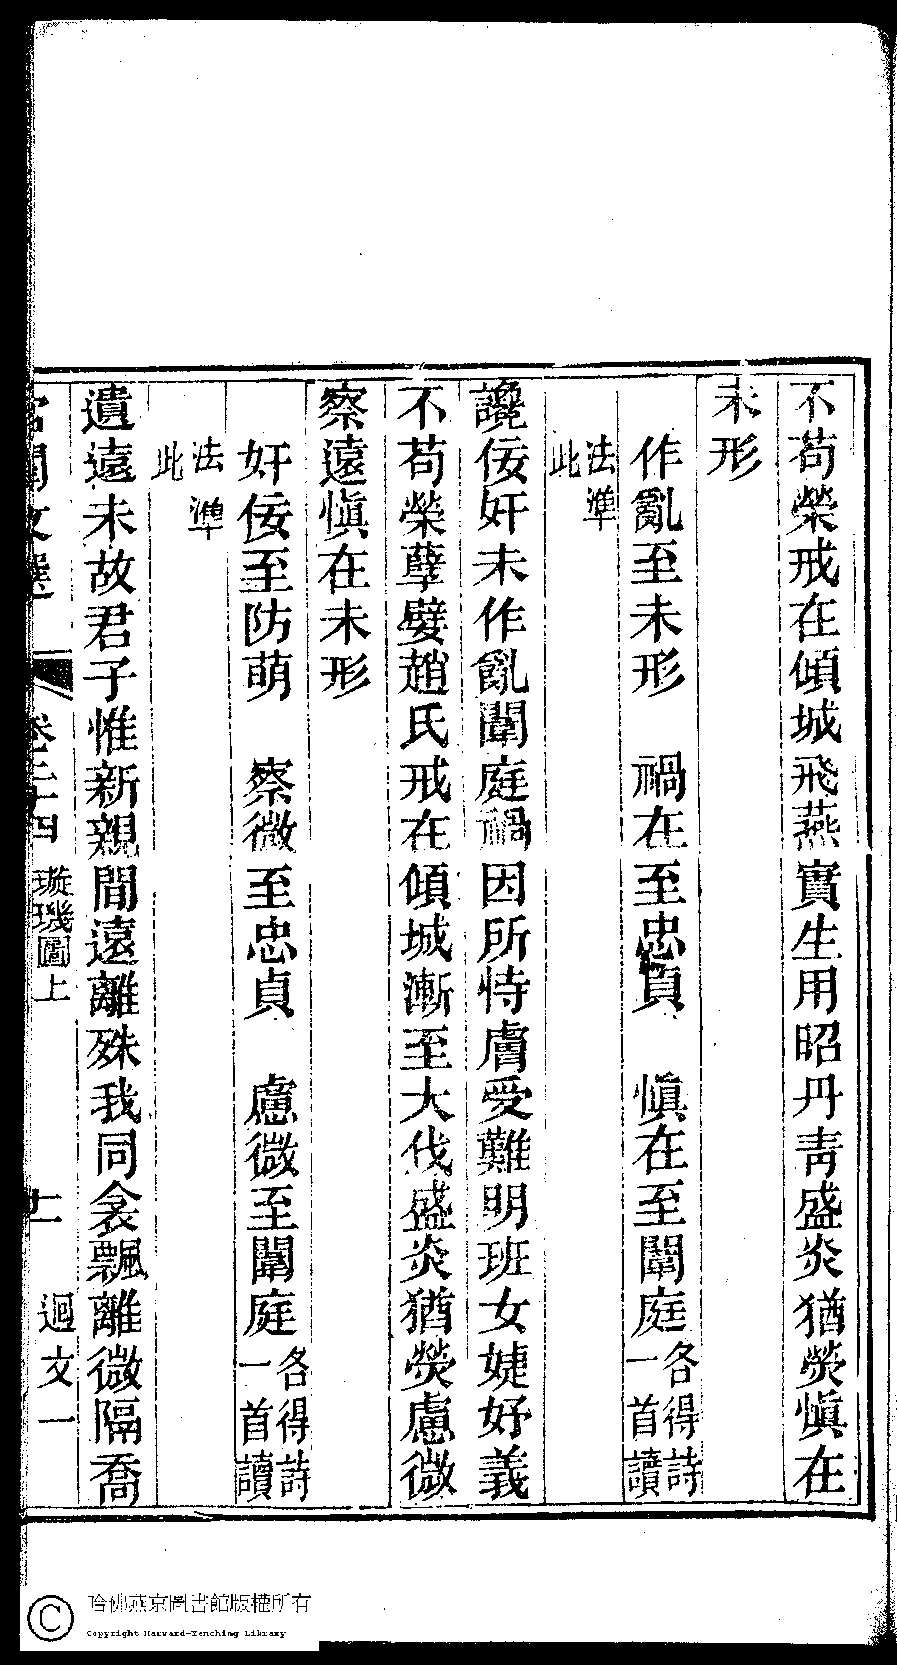 不苟榮戒在傾城飛燕實生用昭丹青盛炎猶熒愼在
未形
作亂至未形　禍在至忠貞　愼在至闈庭各得詩一首讀
法準此
讒佞奸未作亂闈庭禍因所恃膚受難明班女婕妤義
不苟榮孽嬖趙氏戒在傾城漸至大伐盛炎猶熒慮微
察遠愼在未形
奸佞至防萌　察微至忠貞　慮微至闈庭各得詩一首讀
法準此
遺遠未故君子惟新親間遠離殊我同衾飄離微隔喬
宮閨文選　卷二十四　璇璣圖上　迴文一
哈佛燕京圖書館版權所有
Copyright Harvard-Yenching Library